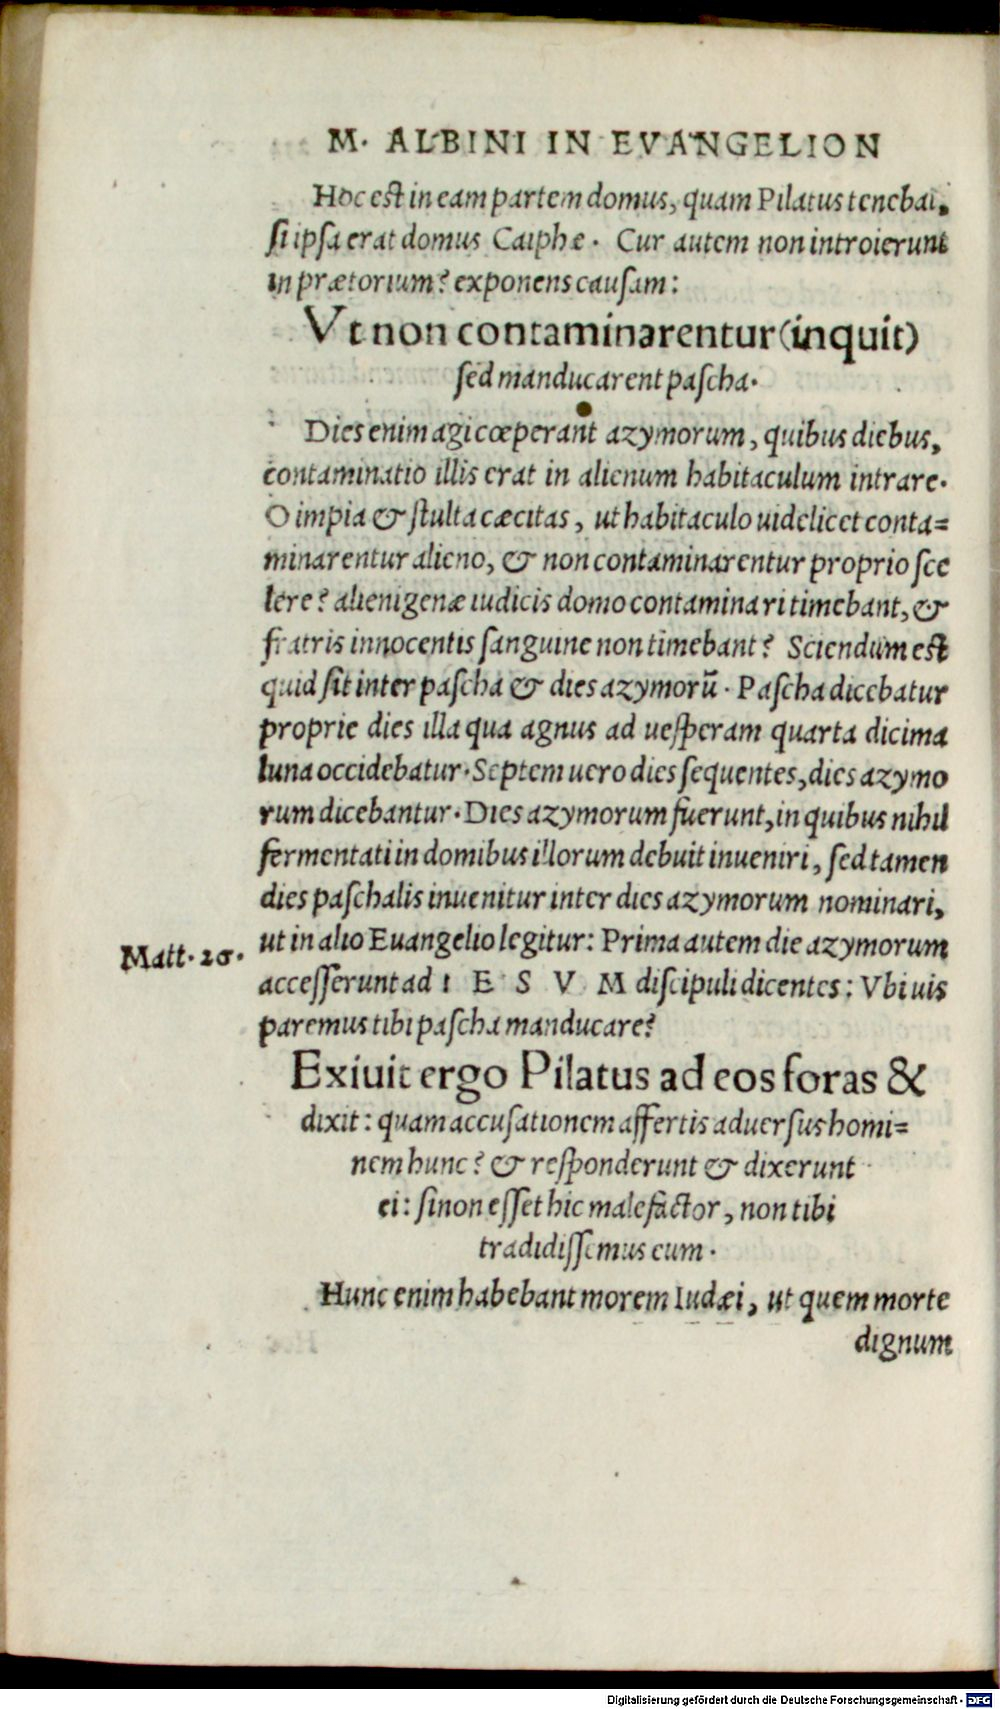 M. ALBINI IN EVANGELION
Hoc est in eam partem domus, quam Pilatus tenebat,
si ipsa erat domus Caiphæ. Cur autem non introierunt
in prætorium? exponens causam:
Vt non contaminarentur (inquit)
sed manducarent pascha.
Dies enim agi cœperant azymorum, quibus diebus,
contaminatio illis erat in alienum habitaculum intrare.
O impia & stulta cæcitas, ut habitaculo uidelicet conta=
minarentur alieno, & non contaminarentur proprio sce
lere? alienigenæ iudicis domo contaminari timebant, &
fratris innocentis sanguine non timebant? Sciendum est
quid sit inter pascha & dies azymorũ. Pascha dicebatur
proprie dies illa qua agnus ad uesperam quarta dicima
luna occidebatur. Septem uero dies sequentes, dies azymo
rum dicebantur. Dies azymorum fuerunt, in quibus nihil
fermentati in domibus illorum debuit inueniri, sed tamen
dies paschalis inuenitur inter dies azymorum nominari,
ut in alio Euangelio legitur: Prima autem die azymorum
Matt. 26.
accesserunt ad I E S V M discipuli dicentes: Vbi uis
paremus tibi pascha manducare?
Exiuit ergo Pilatus ad eos foras &
dixit: quam accusationem affertis aduersus homi=
nem hunc? & responderunt & dixerunt
ei: si non esset hic malefactor, non tibi
tradidissemus eum.
Hunc enim habebant morem Iudæi, ut quem morte
dignum
Digitalisierung gefördert durch die Deutsche Forschungsgemeinschaft - DFG